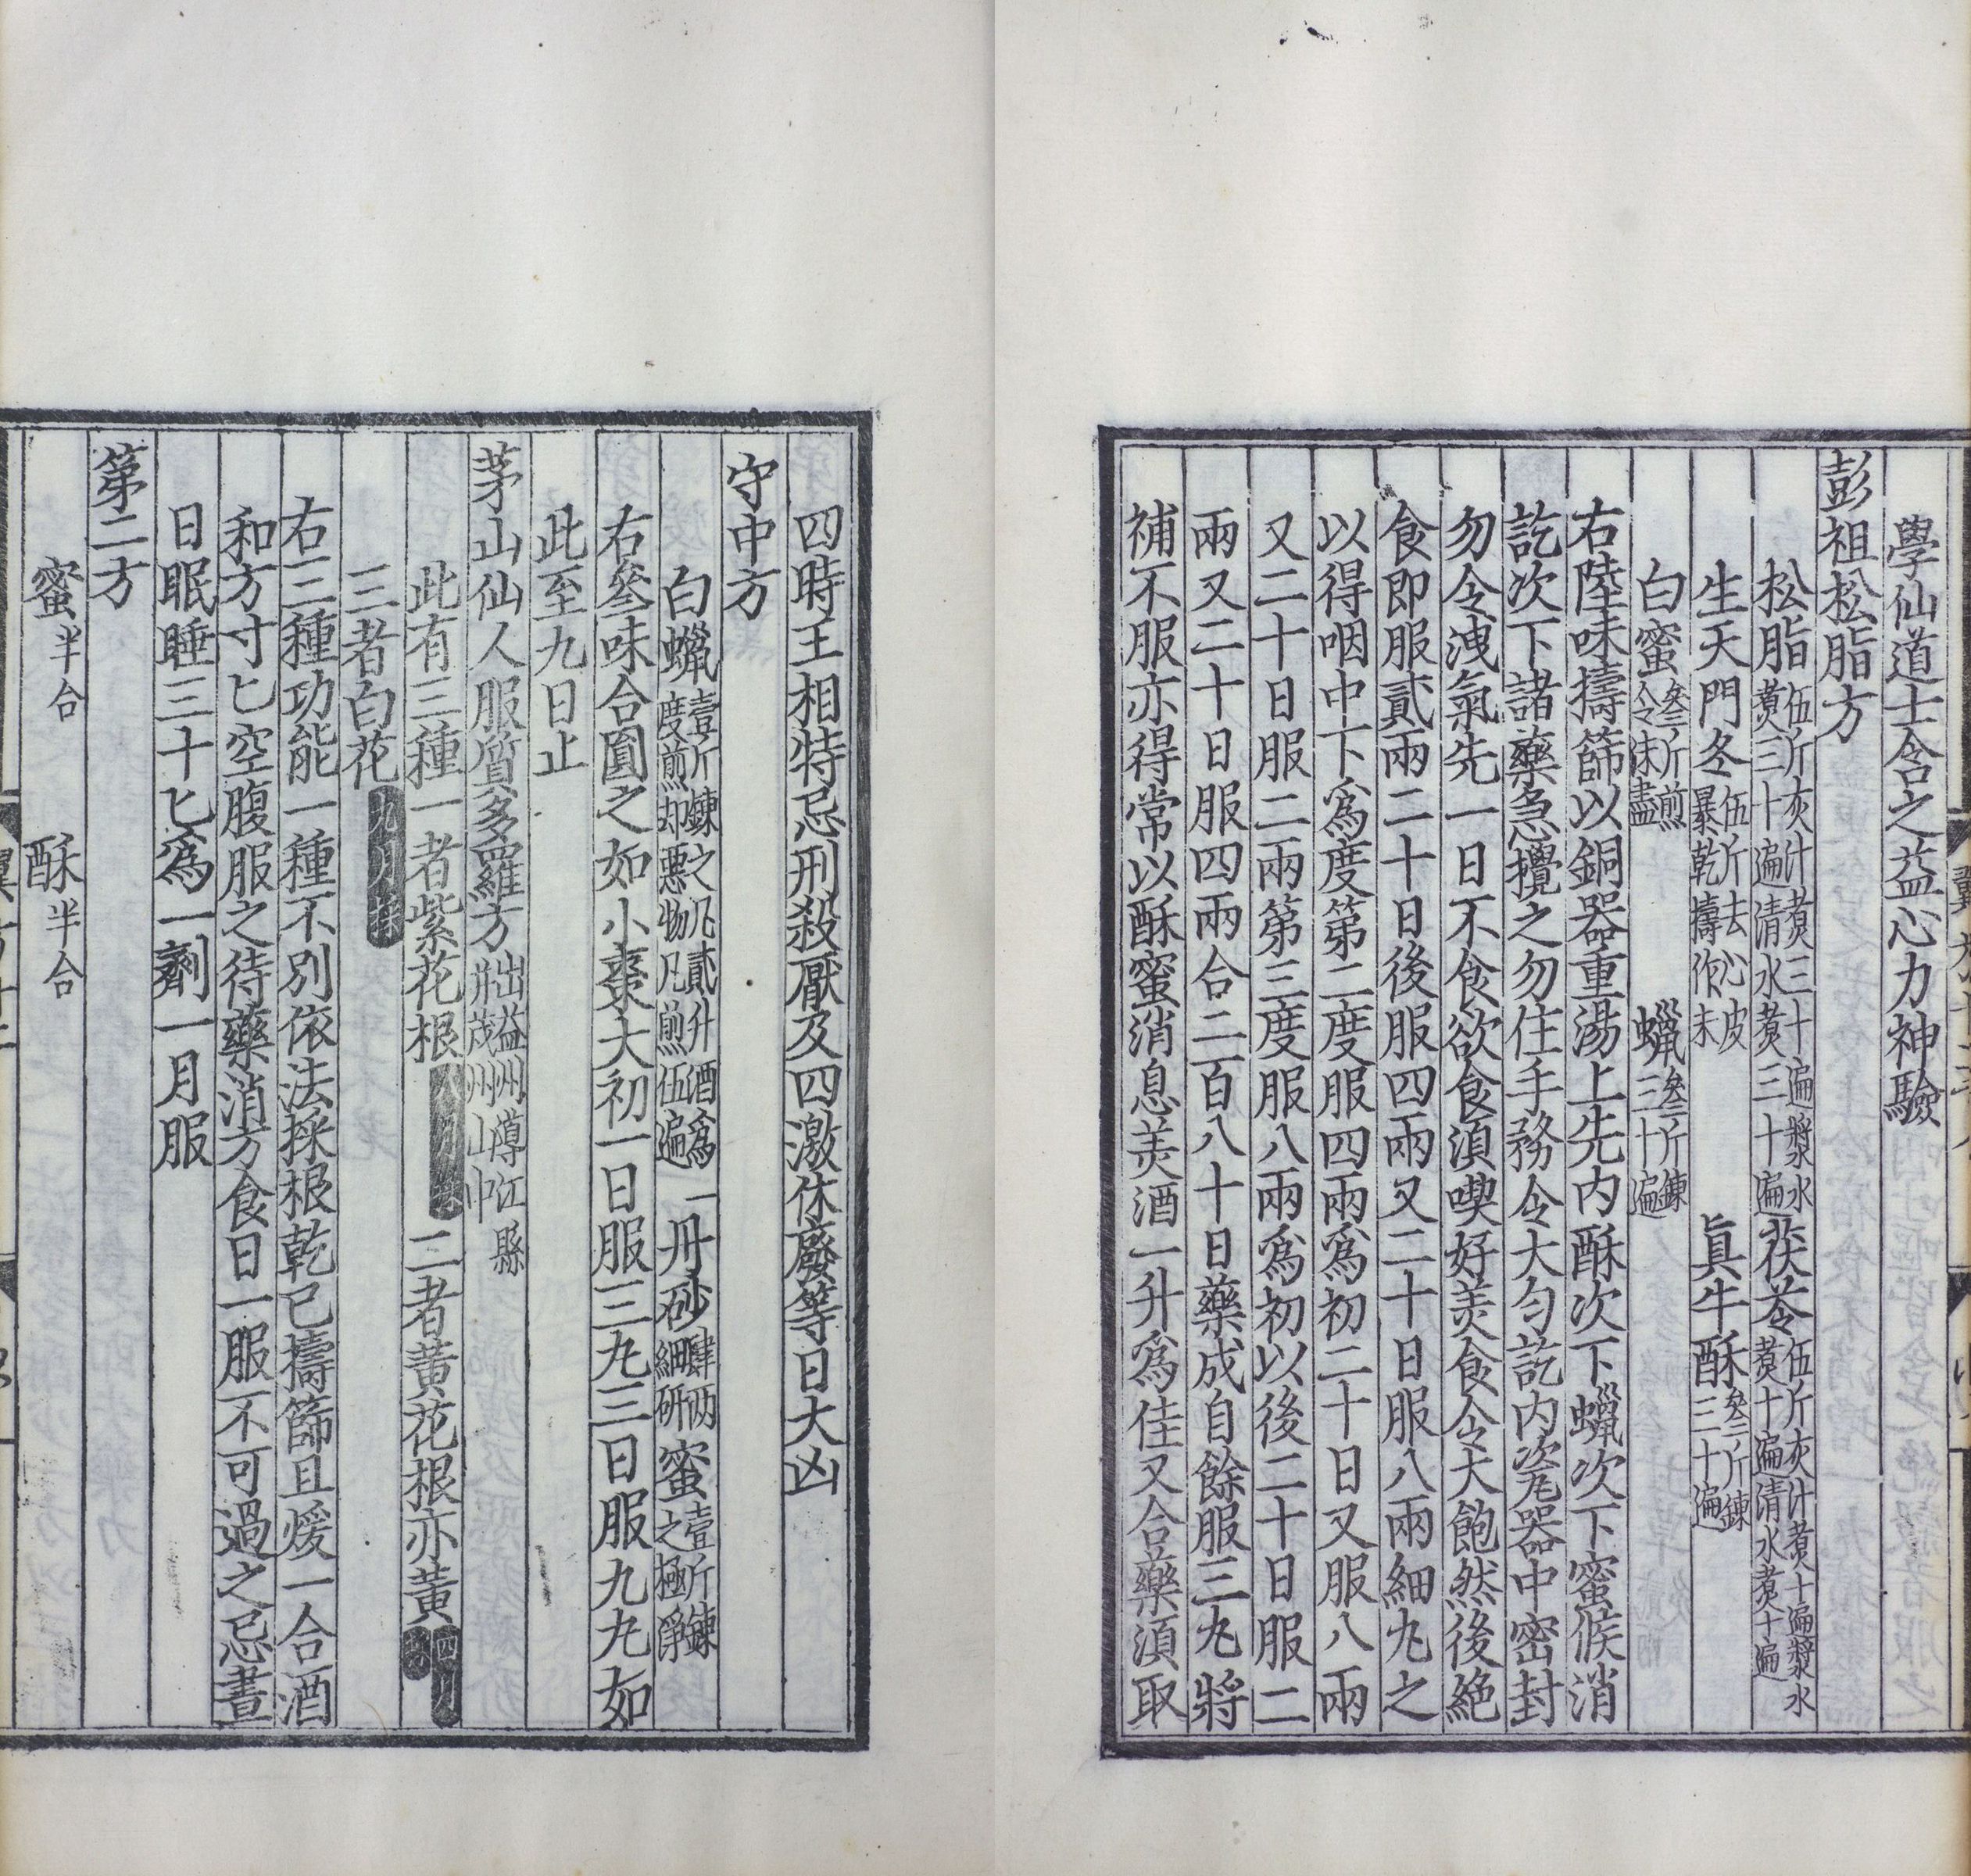 學仙道士含之益心力神驗
彭祖松脂方
松脂伍斤灰汁煑三十遍漿水煑三十遍清水煑三十遍茯苓伍斤灰汁煑十遍漿水煑十遍清水煑十遍
生天門冬伍斤去心皮暴乾擣作末 眞牛酥叄斤鍊三十遍
白蜜叄斤煎令沫盡 蠟叄斤鍊三十遍
右陸味擣篩以銅器重湯上先内酥次下蠟次下蜜候消
訖次下諸藥急攪之勿住手務令大勻訖内瓷器中密封
勿令洩氣先一日不食欲食湏喫好美食令大飽然後絶
食即服貳兩二十日後服四兩又二十日服八兩細丸之
以得咽中下爲度第二度服四兩爲初二十日又服八兩
又二十日服二兩第三度服八兩爲初以後二十日服二
兩又二十日服四兩合二百八十日藥成自餘服三丸將
補不服亦得常以酥蜜消息羙酒一升爲佳又合藥湏取
四時王相特忌刑殺厭及四激休廢等日大凶
守中方
白蠟壹斤鍊之凡貳升酒爲一度煎却惡物凡煎伍遍 丹砂肆兩細研 蜜壹斤鍊之極淨
右叄味合圓之如小棗大初一日服三丸三日服九丸如
此至九日止
茅山仙人服質多羅方出益州導江縣并茂州山中
此有三種一者紫花根八月採二者黄花根亦黄四月採
三者白花九月採
右三種功能一種不別依法採根乾已擣篩且煖一合酒
和方寸匕空腹服之待藥消方食日一服不可過之忌晝
日眠睡三十匕爲一劑一月服
第二方
蜜半合 酥半合